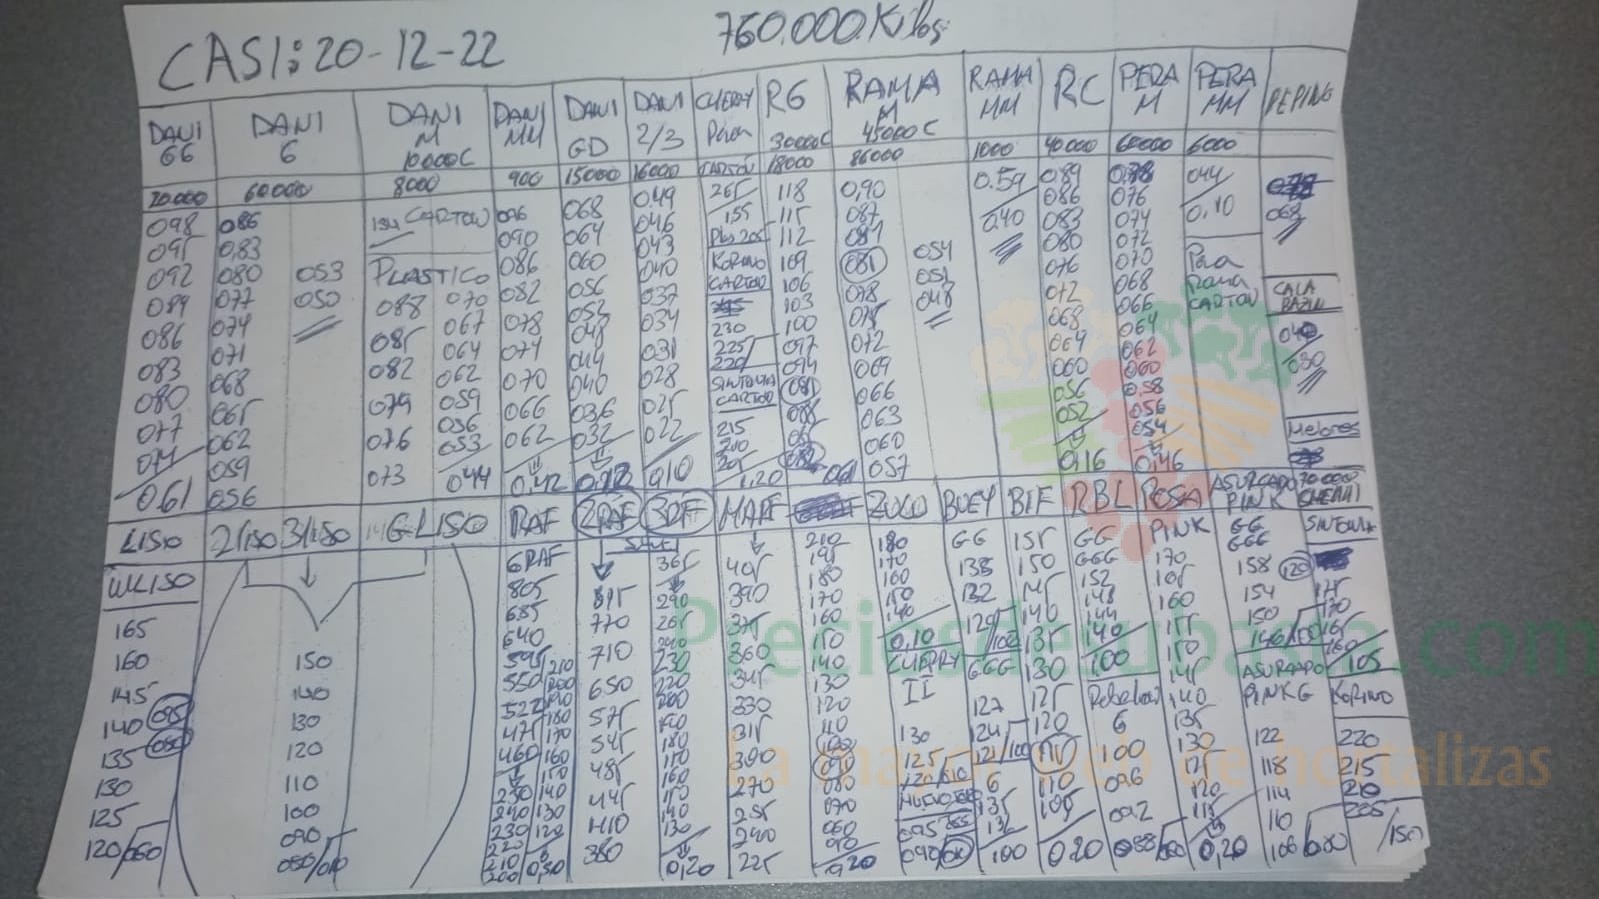 CASI: 20-12-22
760.000 Kilos
DANI GG
DANI G
DANI M 10000C
DANI MM
DANI GD
DANI 2/3
CHERRY Pera
RG 30000C
RAMA M 45000C
RAMA MM
RC
PERA M
PERA MM
PEPINO
20.000
60000
8000
900
15000
16000
CARTON
18000
86000
1000
40000
60000
6000
098
095
092
089
086
083
080
077
074
061
086
0,83
080
077
074
071
068
065
062
059
056
053
050
CARTON
PLASTICO
088
085
082
079
076
073
070
067
064
062
059
056
053
044
096
090
086
082
078
074
070
066
062
0,42
068
064
060
056
052
048
044
040
036
032
0,12
0.49
046
043
040
037
034
031
028
025
022
010
265
155
Plas 205
KORINO
CARTON
230
225
220
SINTONIA
CARTON
215
210
205
1,20
118
115
112
109
106
103
100
097
094
0,90
087
084
081
078
075
072
069
066
063
060
057
054
051
048
0.59
0,40
089
086
083
080
076
072
068
064
060
056
052
0,16
076
074
072
070
068
066
064
062
060
0.58
056
054
0,46
044
0,10
Pera
Rama
CARTON
068
CALA
BAZIN
040
030
Melones
LISO
2/LISO
3/LISO
G LISO
RAF
2RAF
3RAF
MARF
ZOCO
BUEY
BIF
RBL
ROSA
ASURCADO
PINK
CHERRI
ULISO
165
160
145
140
135
130
125
120/060
150
140
130
120
110
100
090
080/010
GRAF
805
685
640
595
550
522
475
460
250
240
230
220
210
200
210
200
190
180
170
160
150
140
130
120
0,50
815
770
710
650
575
545
485
445
410
380
365
290
265
240
230
220
200
190
180
170
160
140
130
0,20
405
390
375
360
345
330
315
300
270
255
240
225
210
195
180
170
160
150
140
130
120
110
100
090
080
070
060
0,20
180
170
160
150
140
0,10
CHERRY
II
130
125
120/010
095
090
GG
138
132
129/100
GGG
127
124
121/100
G
135
132
100
155
150
145
140
135
130
125
120
110
110
105
020
GG
GGG
152
148
144
140
100
Rebelion
G
100
096
092
088/060
PINK
170
165
160
155
150
145
140
135
130
125
120
115
0,20
GG
GGG
158
154
150
146/120
ASURCADO
PINK G
122
118
114
110
106/080
SINTONIA
120
175
170
165
160
105
KORINO
220
215
210
205
150
Preciosdesubasta.com
La mayor web de hortalizas